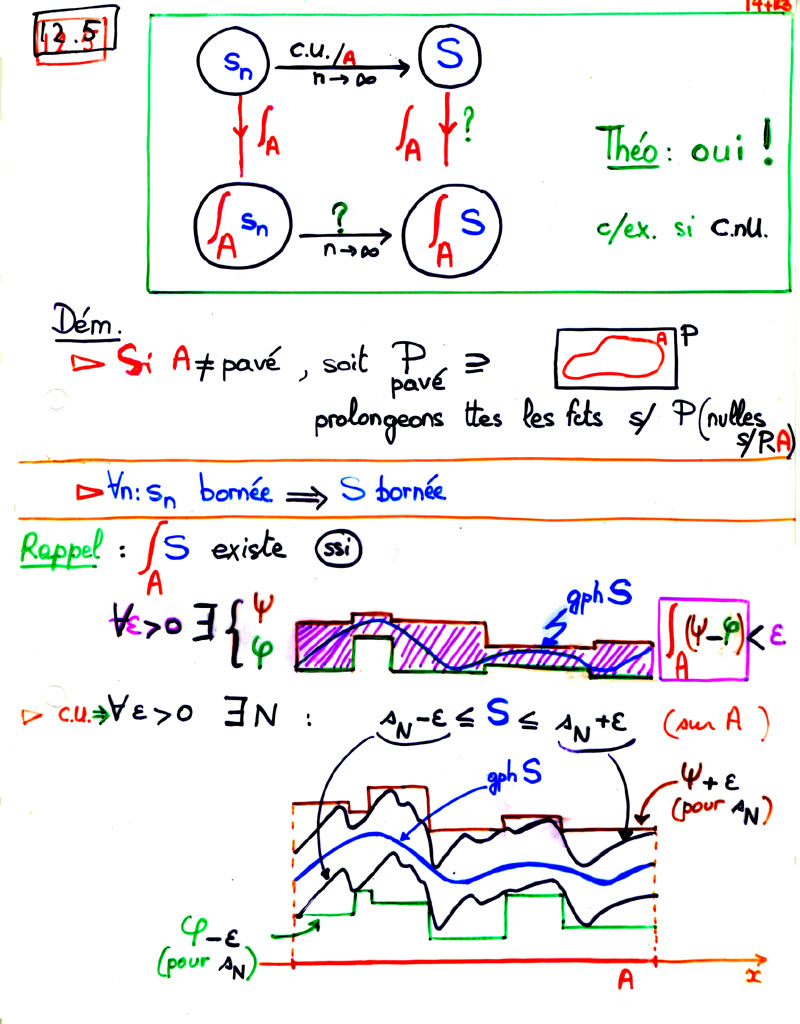 12.5
s_n c.u./A n→∞ S
∫_A ∫_A ?
∫_A s_n ? n→∞ ∫_A S
Théo : oui !
c/ex. si C.nU.
Dém.
▷ Si A ≠ pavé , soit P pavé ⊇ A P
prolongeons ttes les fcts s/ P (nulles
s/P\A)
▷ ∀n: s_n bornée ⟹ S bornée
Rappel : ∫_A S existe ssi
∀ε>0 ∃ { ψ φ gph S ∫_A (ψ-φ) < ε
▷ c.u.⇒ ∀ε>0 ∃N : s_N-ε ≤ S ≤ s_N+ε (sur A)
gph S
ψ+ε
(pour s_N)
φ-ε
(pour s_N)
A x